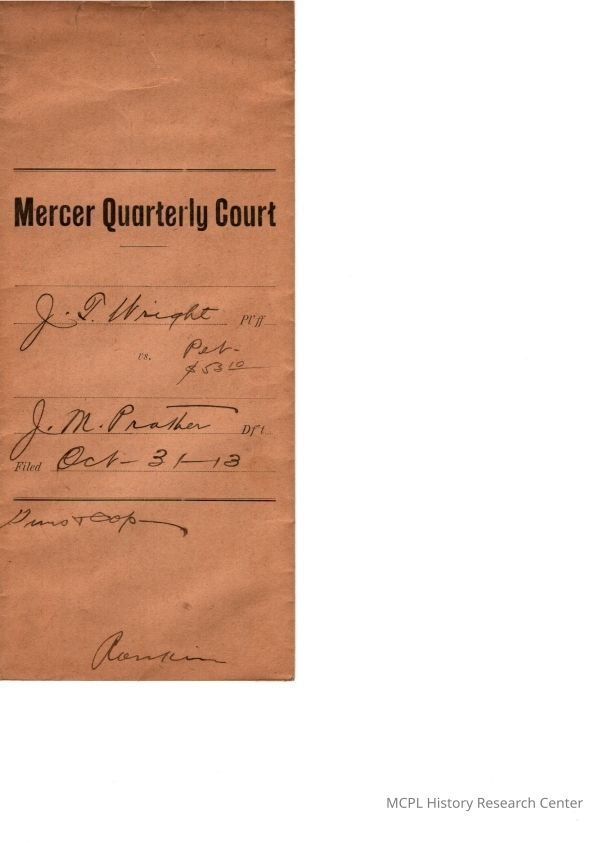 Mercer Quarterly Court
J. T. Wright Pl'ff
vs. Pet-
$53 10
J. M. Prather Df't
Filed Oct - 31 - 13
Rankin
MCPL History Research Center